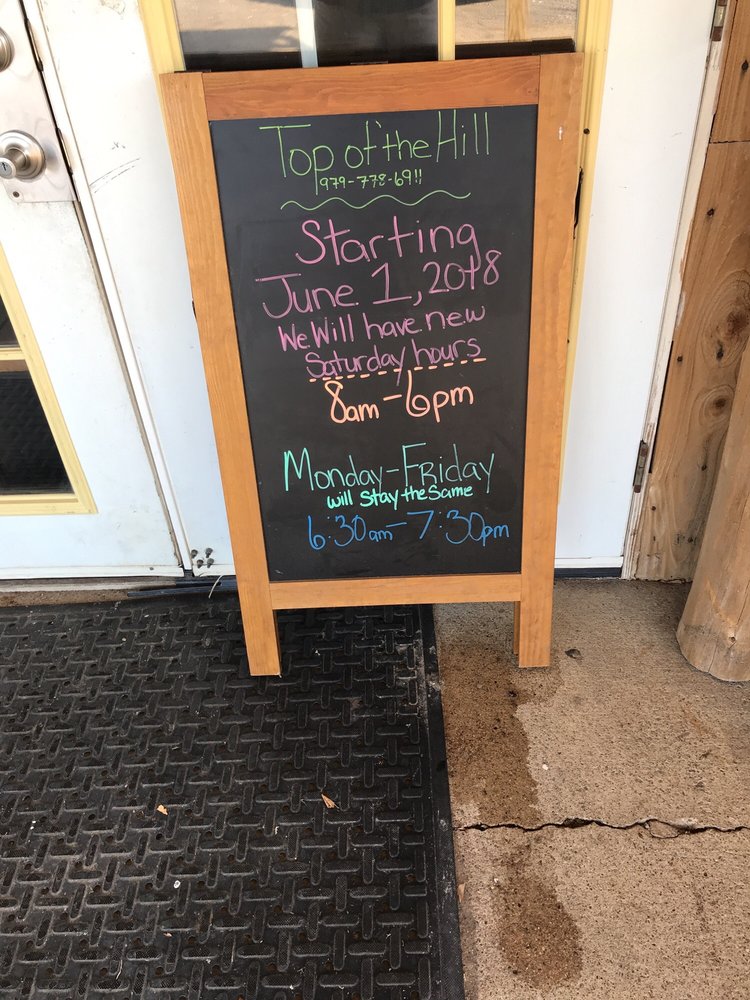 Top of the Hill
979-778-6911
Starting
June 1, 2018
We Will have new
Saturday hours
8am-6pm
Monday-Friday
will Stay the Same
6:30am-7:30pm